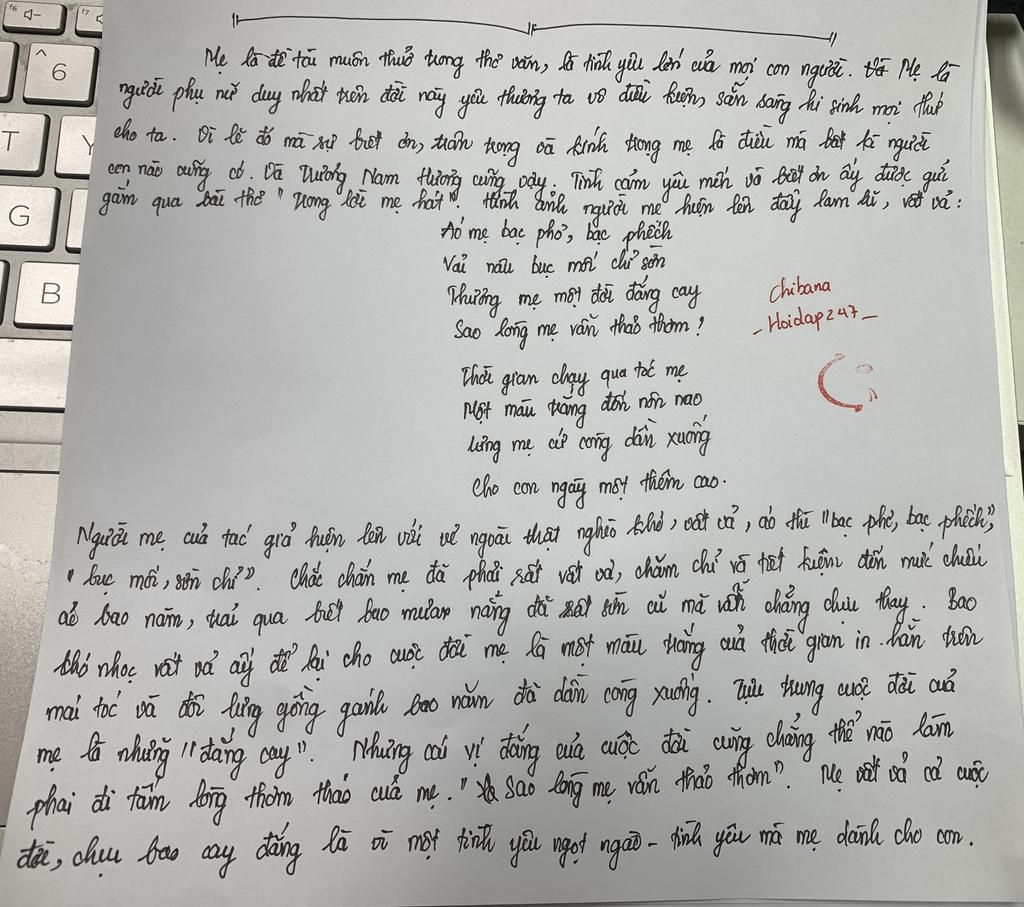 Mẹ là đề tài muôn thuở trong thơ văn, là tình yêu lớn của mọi con người. Và Mẹ là
người phụ nữ duy nhất trên đời này yêu thương ta vô điều kiện, sẵn sàng hi sinh mọi thứ
cho ta. Vì lẽ đó mà sự biết ơn, trân trọng và kính trọng mẹ là điều mà bất kì người
con nào cũng có. Và Trương Nam Hương cũng vậy. Tình cảm yêu mến và biết ơn ấy được gửi
gắm qua bài thơ "Trong lời mẹ hát". Hình ảnh người mẹ hiện lên đầy lam lũ, vất vả:
Áo mẹ bạc phơ, bạc phếch
Vải nâu bục mối chỉ sờn
Thương mẹ một đời đắng cay
Sao lòng mẹ vẫn thảo thơm?
Chibana
- Hoidap247 -
Thời gian chạy qua tóc mẹ
Một màu trắng đến nôn nao
Lưng mẹ cứ còng dần xuống
Cho con ngày một thêm cao.
Người mẹ của tác giả hiện lên với vẻ ngoài thật nghèo khó, vất vả, áo thì "bạc phơ, bạc phếch",
"bục mối, sờn chỉ". Chắc chắn mẹ đã phải rất vất vả, chăm chỉ và tiết kiệm đến mức chiếc
áo bao năm, trải qua biết bao mưa nắng đã rất sờn cũ mà vẫn chẳng chịu thay. Bao
khó nhọc vất vả ấy để lại cho cuộc đời mẹ là một màu trắng của thời gian in hằn trên
mái tóc và đôi lưng gồng gánh bao năm đã dần còng xuống. Tựu trung cuộc đời của
mẹ là những "đắng cay". Nhưng cái vị đắng của cuộc đời cũng chẳng thể nào làm
phai đi tấm lòng thơm thảo của mẹ. "Sao lòng mẹ vẫn thảo thơm". Mẹ vất vả cả cuộc
đời, chịu bao cay đắng là vì một tình yêu ngọt ngào - tình yêu mà mẹ dành cho con.